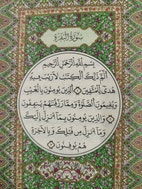 سورة البقرة
بسم الله الرحمن الرحيم
الم ذلك الكتب لا ريب فيه
هدى للمتقين الذين يؤمنون بالغيب
ويقيمون الصلوة ومما رزقنهم ينفقون
والذين يؤمنون بما أنزل إليك
وما أنزل من قبلك وبالآخرة
هم يوقنون